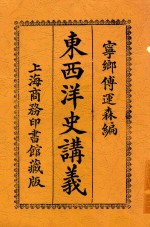 寧鄉傅運森編
東西洋史講義
上海商務印書館藏版